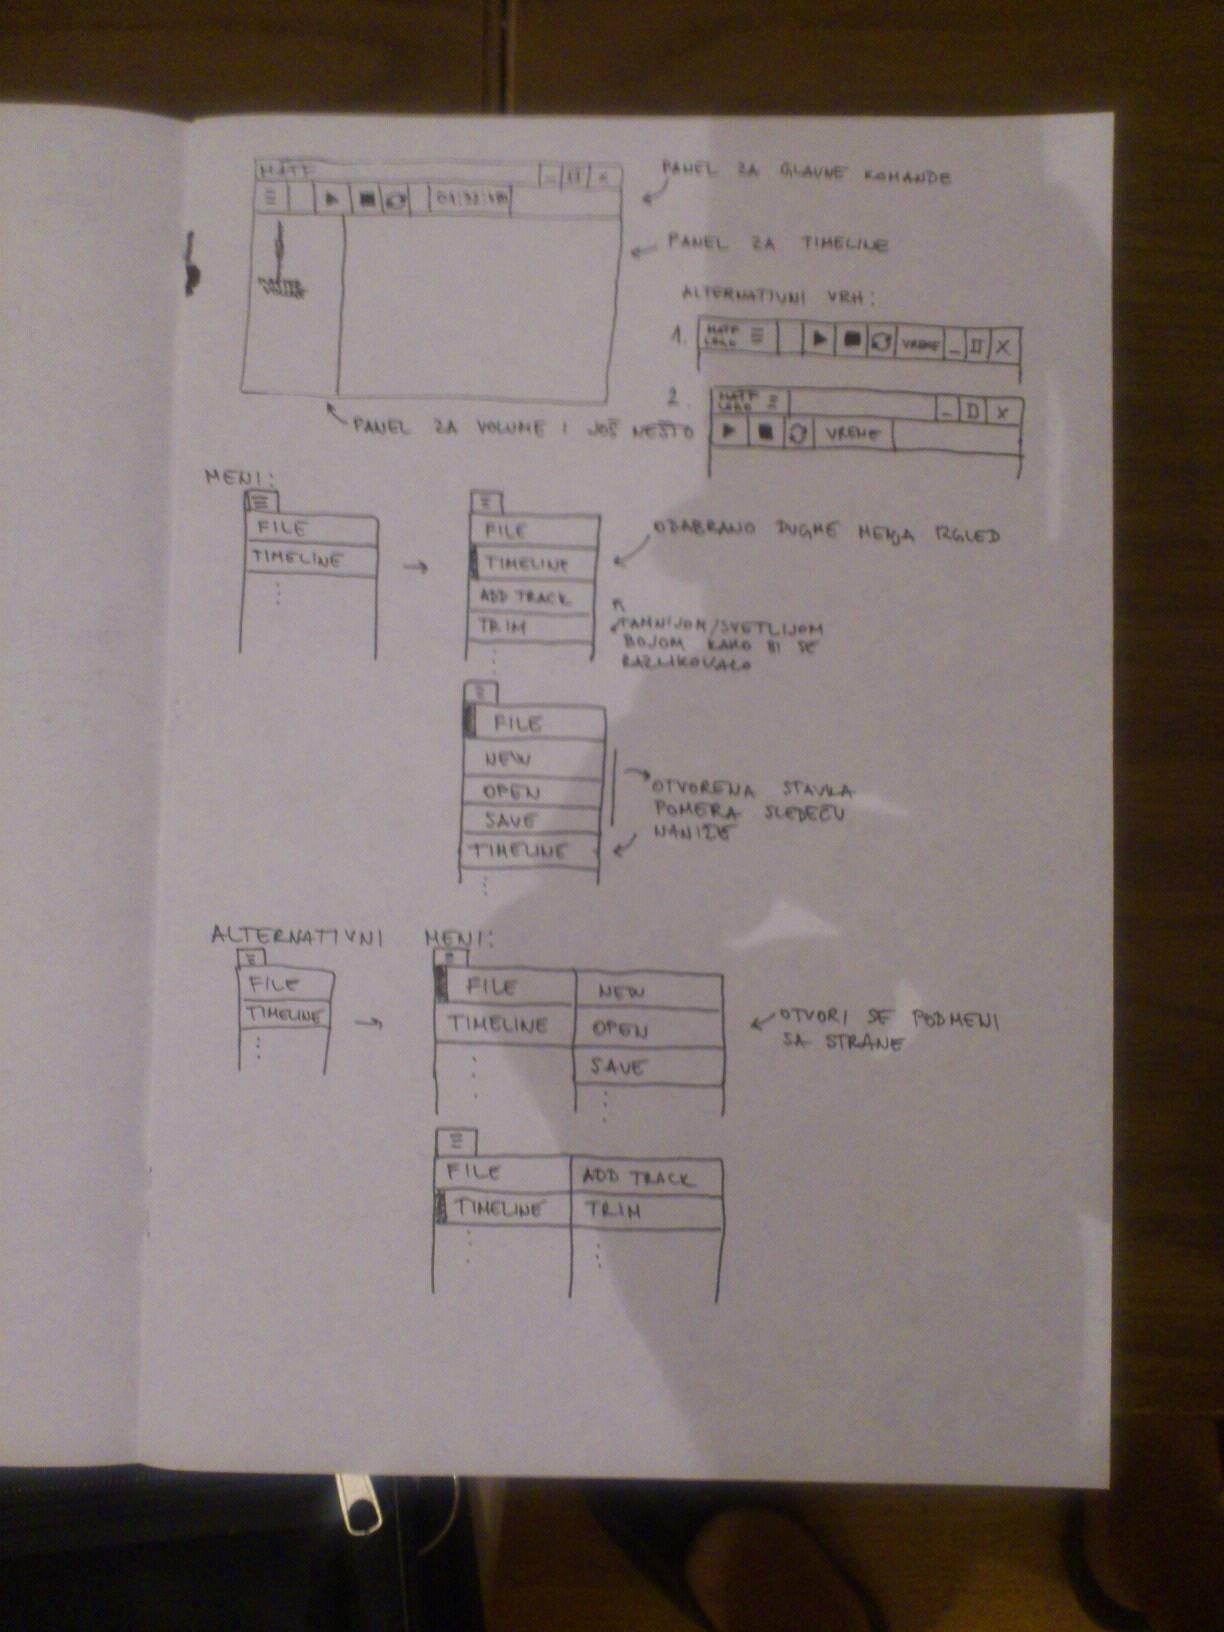 MATF
_ X
PANEL ZA GLAVNE KOMANDE
MASTER
VOLUME
PANEL ZA TIMELINE
ALTERNATIVNI VRH:
1. MATF
LOGO
VREME _ X
PANEL ZA VOLUME I JOŠ NEŠTO
2. MATF
LOGO
_ X
VREME
MENI:
FILE
TIMELINE
FILE
TIMELINE
ADD TRACK
TRIM
ODABRANO DUGME MENJA IZGLED
TAMNIJOM/SVETLIJOM
BOJOM KAKO BI SE
RAZLIKOVALO
FILE
NEW
OPEN
SAVE
TIMELINE
OTVORENA STAVKA
POMERA SLEDEĆU
NANIŽE
ALTERNATIVNI MENI:
FILE
TIMELINE
FILE NEW
TIMELINE OPEN
SAVE
OTVORI SE PODMENI
SA STRANE
FILE ADD TRACK
TIMELINE TRIM